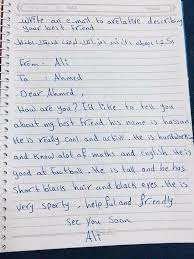 write an e-mail to arelative describing
your best friend
From: Ali
To: Ahmed
Dear Ahmed,
How are you? I'd like to tell you
about my best friend his name is hassan.
He is really cool and active. He is hardworking
and know alot of maths and english. He is
good at football. He is tall and he has
short black hair and black eyes. He is
very sporty, helpful and friendly.
see you soon
Ali